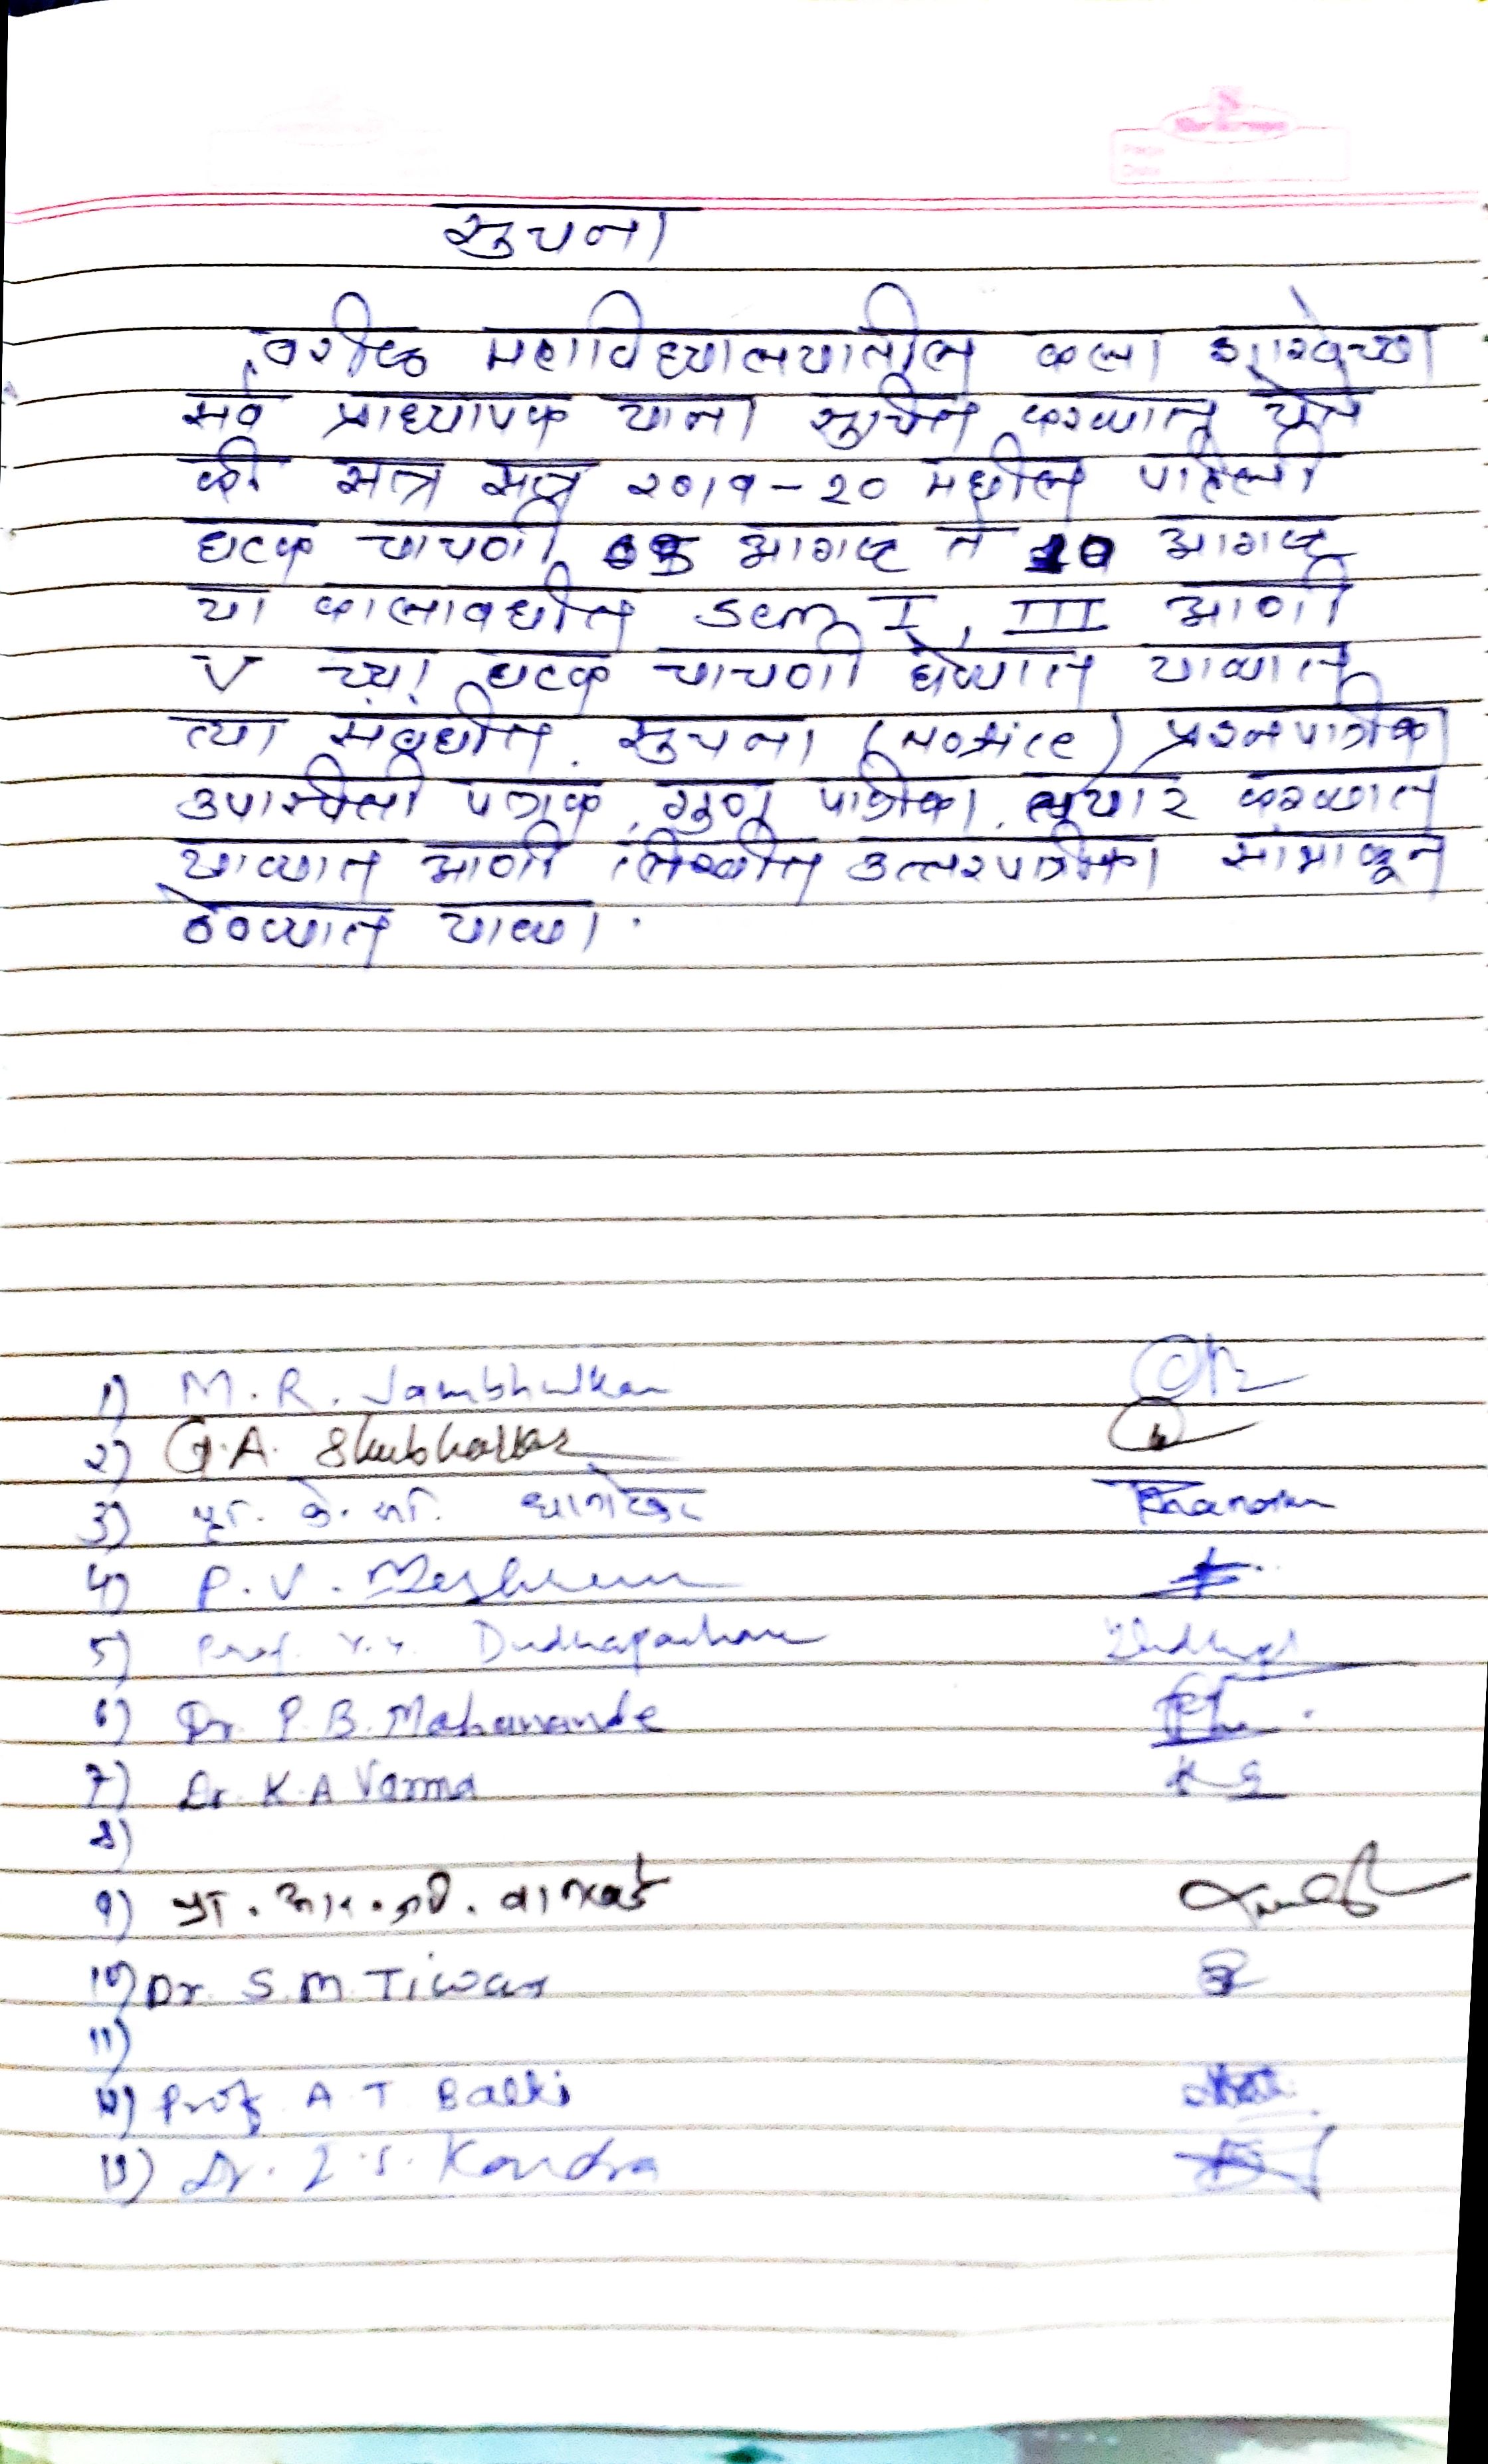 सुचना
वरीष्ठ महाविद्यालयातील कला शाखेच्या
सर्व प्राध्यापक यांना सुचित करण्यात येते
की सत्र सत्र २०१९-२० मधील पहिली
घटक चाचणी 05 आगष्ट ते 10 आगष्ट
या कालावधीत Sem I, III आणी
V च्या घटक चाचणी घेण्यात याव्यात
त्या संबधीत सुचना (Notice) प्रश्नपत्रीका
उपास्थिती पत्रक, गुण पत्रीका, तयार करण्यात
याव्यात आणी लिखीत उत्तरपत्रीका सांभाळून
ठेवण्यात याव्या.
1) M. R. Jambhulkar
2) G. A. Shubhalkar
3) प्रा. के. धानोरकर
4) P. V. Meshram
5) Prof. Y. Y. Dudhapachare
6) Dr. P. B. Mahanande
7) Dr. K. A Varma
8)
9) प्रा. आर. व्ही. वाळके
10) Dr. S. M. Tiwari
11)
12) Prof A T Balki
13) Dr. S. Kondra